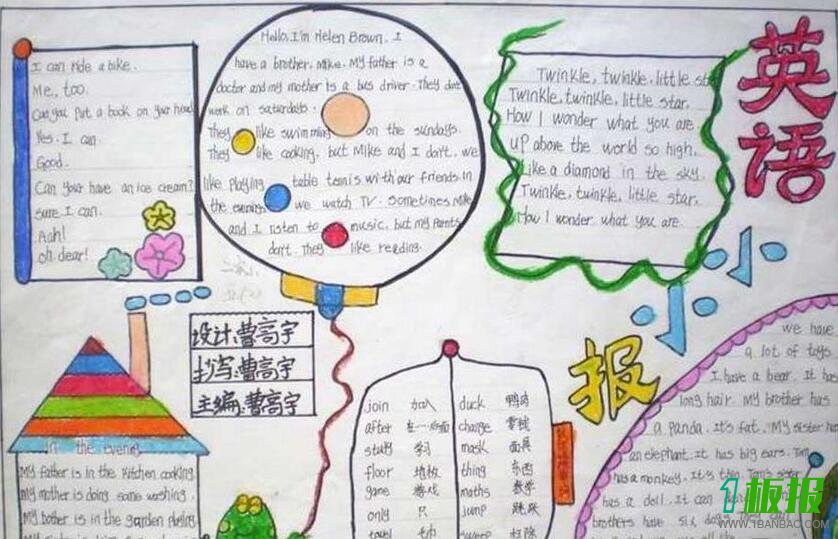 I can ride a bike.
Me, too.
Can you put a book on your head
Yes. I can.
Good.
Can your have an ice cream?
sure. I can.
Aah!
oh dear!
Hello, I'm Helen Brown. I
have a brother, Mike. My father is a
doctor and my mother is a bus driver. They don't
work on saturdays.
They like swimming on the sundays.
They like cooking, but Mike and I don't. we
like playing table tennis with our friends. In
the evening we watch TV. Sometimes Mike
and I listen to music, but my Parents
don't. They like reading.
Twinkle, twinkle, little star
Twinkle, twinkle, little star,
How I wonder what you are
up above the world so high,
Like a diamond in the sky.
Twinkle, twinkle, little star,
How I wonder what you are.
英语
小小
报
设计:曹高宇
抄写:曹高宇
主编:曹高宇
in the evening
My father is in the kitchen cooking
My mother is doing some washing.
My bother is in the garden playing
join 加入 duck 鸭肉
after 在…后面 change 零钱
study 学习 mask 面具
floor 地板 thing 东西
game 游戏 maths 数学
only 只 jump 跳跃
towel 毛巾 sweep 扫除
we have
a lot of toys.
I have a bear. It has
long hair. My brother has
a panda. It's fat. My sister has
an elephant. It has big ears. Tom
has a monkey. It's thin.
has a doll. It can
brothers have six
1板报
WWW.1BANBAO.COM